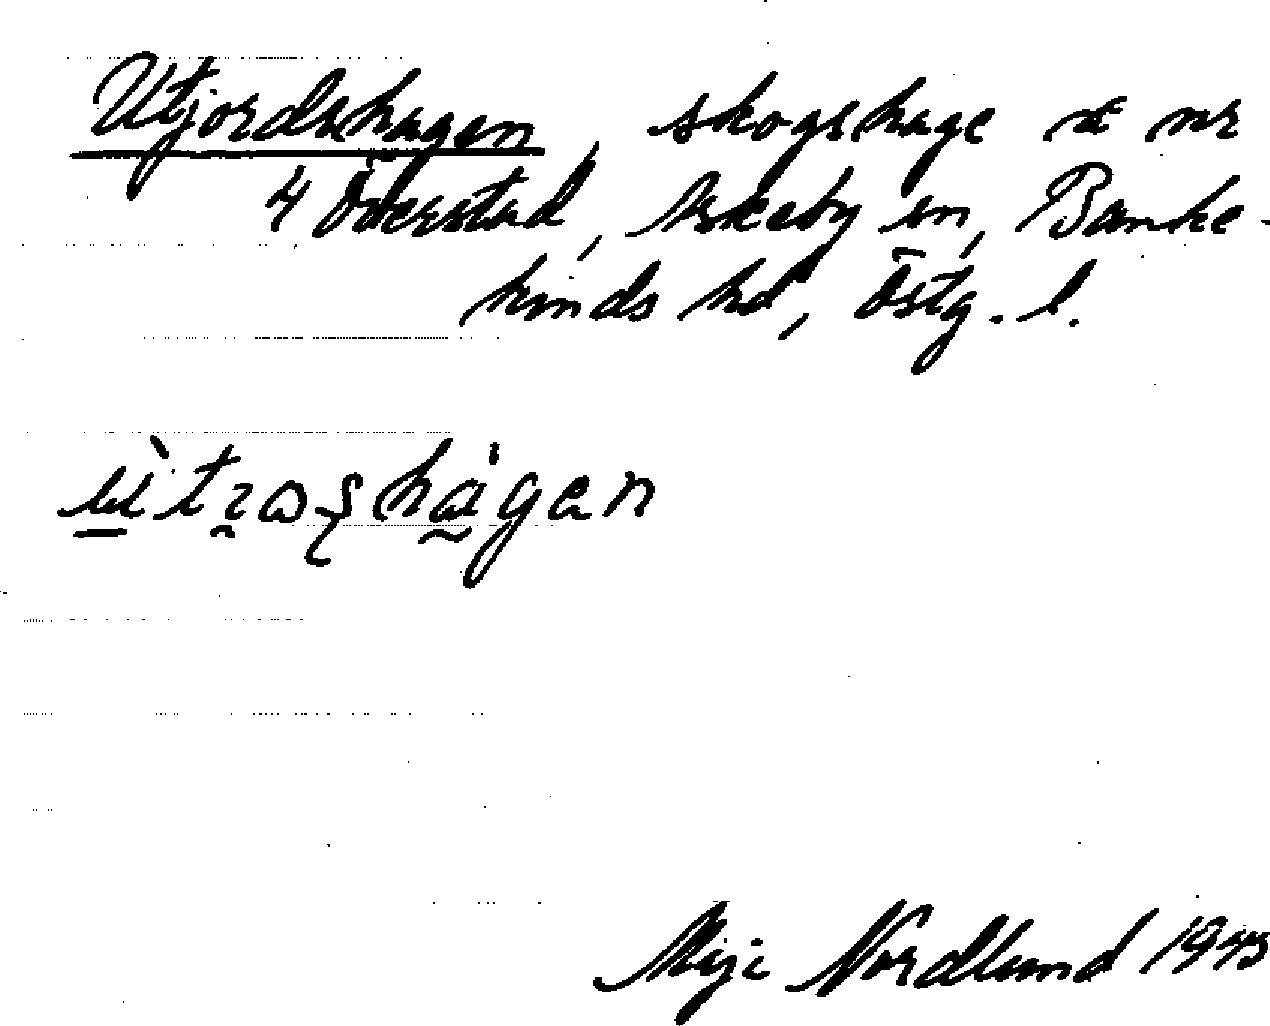 Utjordshagen, skogshage at nr
4 Överstad, Askeby sn, Banke-
kinds hd, Östg. l.
Maja Nordlund 1945